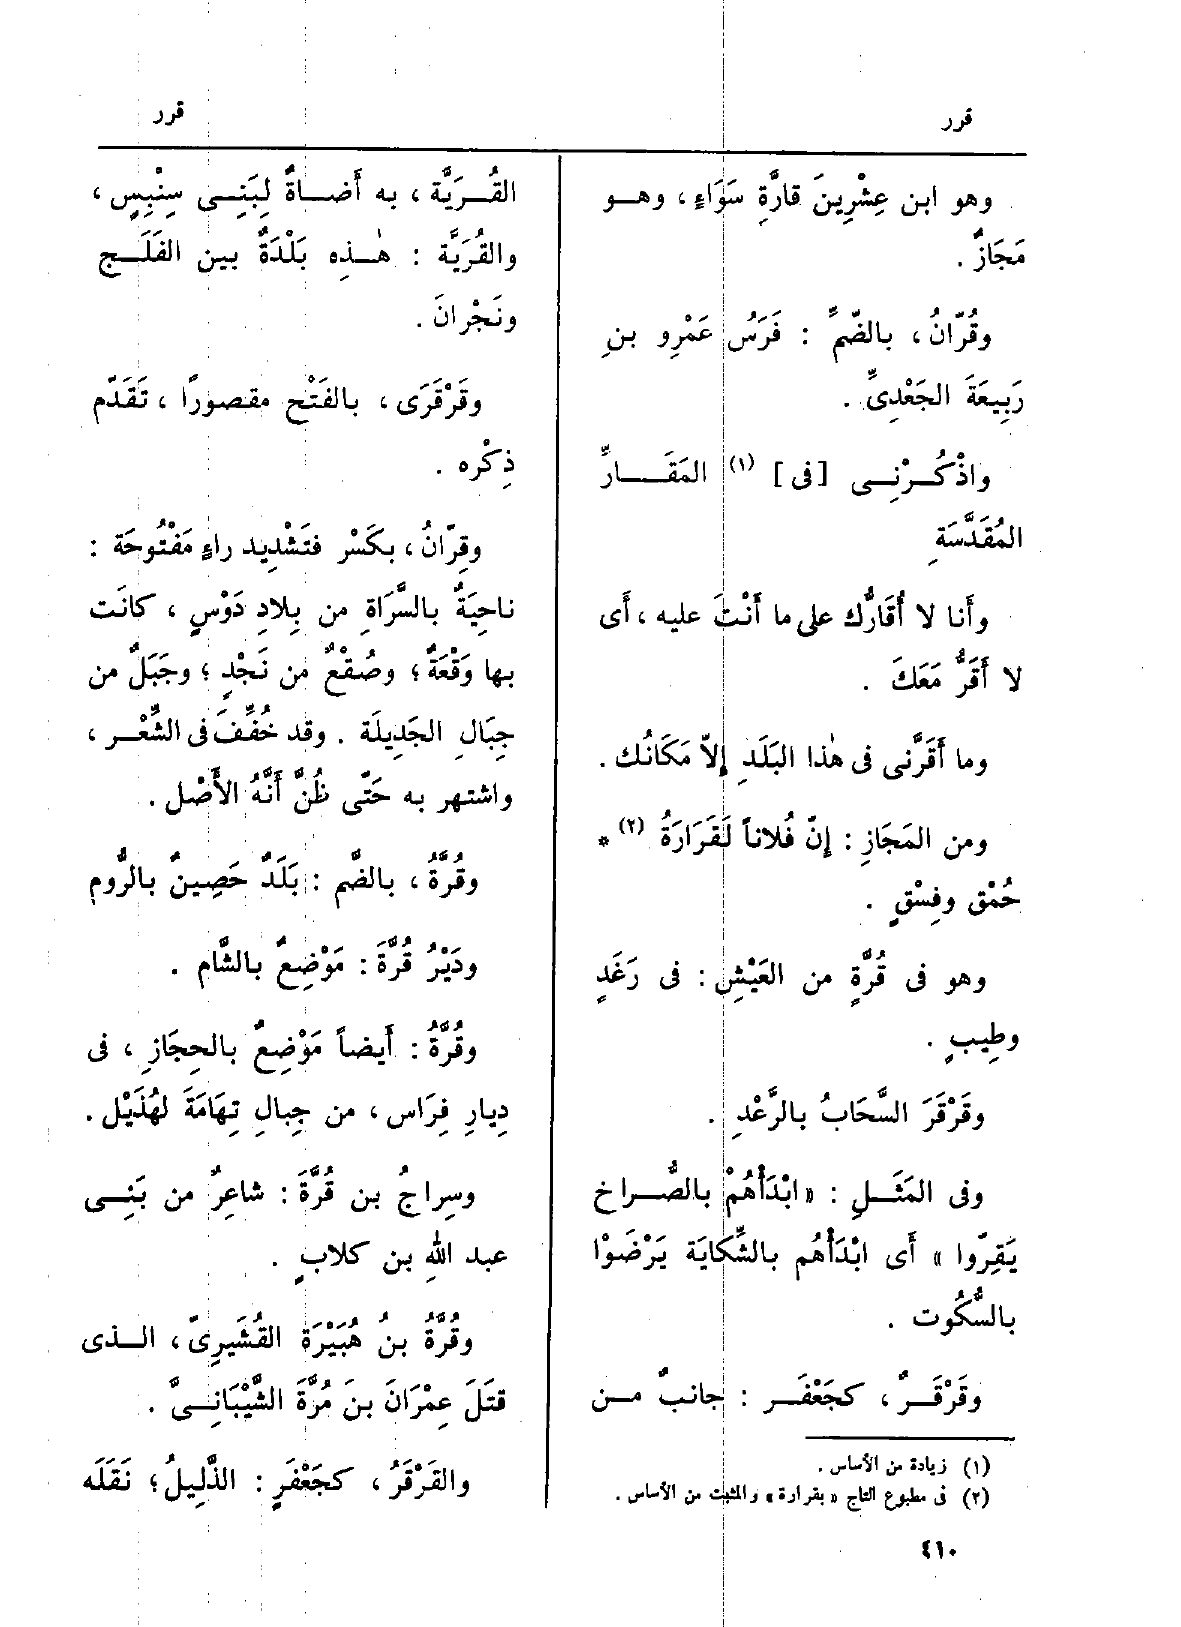 قرر
قرر
وهو ابن عِشْرِينَ قارَّةِ سَوَاءٍ، وهـو
مَجَازٌ.
وقُرّانُ، بالضّمّ : فَرَسُ عَمْرِو بنِ
رَبِيعَةَ الجَعْدِىِّ .
واذْكُـرْنِـى [فى] (١) المَقَـارِّ
المُقَدَّسَةِ
وأَنا لا أُقَارُّك على ما أَنْتَ عليه ، أَى
لا أَقَرُّ مَعَكَ .
وما أَقَرَّنى فى هٰذا البَلَدِ إِلاّ مَكَانُك .
ومن المَجَازِ : إِنّ فُلاناً لَقَرَارَةُ (٢) *
حُمْقٍ وفِسْقٍ .
وهو فى قُرَّةٍ من العَيْشِ : فى رَغَدٍ
وطِيبٍ .
وقَرْقَرَ السَّحَابُ بالرَّعْدِ .
وفى المَثَـلِ : « ابْدَأْهُمْ بالصُّـراخِ
يَقِرّوا » أَى ابْدَأْهُم بالشِّكايَة يَرْضَوْا
بالسُّكُوت .
وقَرْقَـرٌ ، كجَعْفَـر : جانبٌ مـن
(١) زيادة من الأساس .
(٢) فى مطبوع التاج « بقرارة » والمثبت من الأساس .
القُـرَيَّة ، به أَضـاةٌ لِبَنِـى سِنْبِسٍ ،
والقُرَيَّة : هٰـذِه بَلْدَةٌ بين الفَلَـج
ونَجْرانَ .
وقَرْقَرَى ، بالفَتْح مقصورًا ، تَقَدّم
ذِكْره .
وقِرّانُ ، بكَسْر فتَشْدِيد راءٍ مَفْتُوحَة :
ناحِيَةٌ بالسَّرَاةِ من بِلادِ دَوْسٍ ، كانَت
بها وَقْعَةٌ ؛ وصُقْعٌ من نَجْدٍ ؛ وجَبَلٌ من
جِبَالِ الجَدِيلَة . وقد خُفِّفَ فى الشِّعْـر ،
واشتهر به حَتّى ظُنَّ أَنَّهُ الأَصْل .
وقُرَّةُ ، بالضّم : بَلَدٌ حَصِينٌ بالرُّوم
ودَيْرُ قُرَّةَ : مَوْضِعٌ بالشَّام .
وقُرَّةُ : أَيضاً مَوْضِعٌ بالحِجَازِ ، فى
دِيارِ فِرَاس ، من جِبالِ تِهَامَةَ لهُذَيْل .
وسِراجُ بن قُرَّةَ : شاعِرٌ من بَنِـى
عبد اللهِ بن كلابٍ .
وقُرَّةُ بنُ هُبَيْرَة القُشَيرِىّ ، الـذى
قتَلَ عِمْرَانَ بنَ مُرَّةَ الشَّيْبَانِـىَّ .
والقَرْقَرُ ، كجَعْفَرٍ : الذَّلِيلُ ؛ نَقَلَه
٤١٠